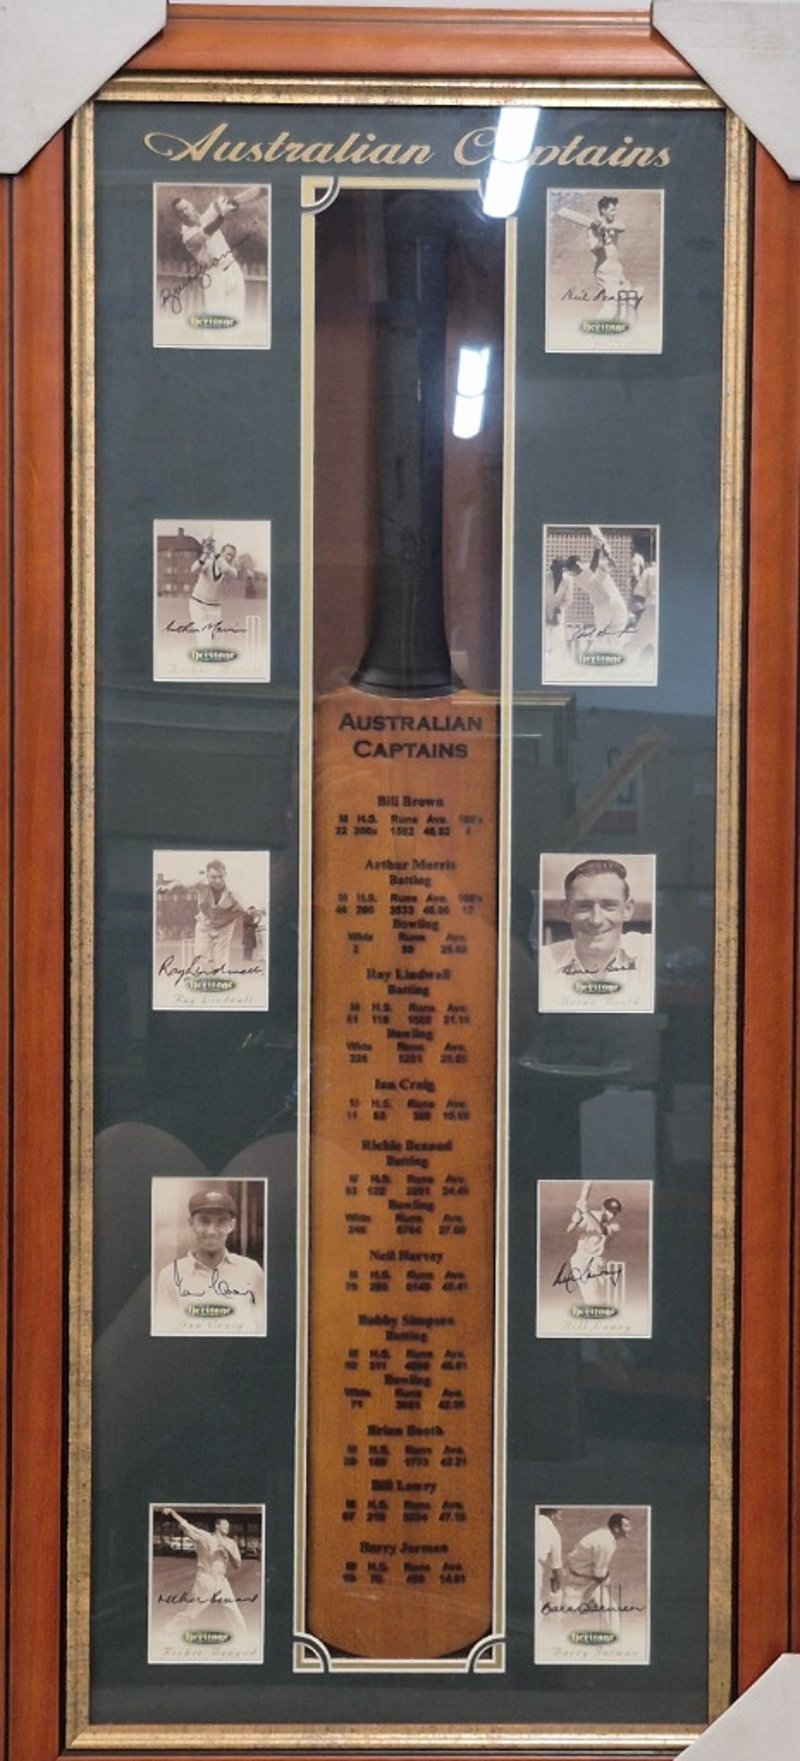 Australian Captains
Heritage
Heritage
Arthur Morris
Heritage
Ray Lindwall
Heritage
Ian Craig
Heritage
Richie Benaud
Heritage
AUSTRALIAN
CAPTAINS
Bill Brown
M H.S. Runs Ave. 100's
22 206x 1592 46.82 4
Arthur Morris
Batting
M H.S. Runs Ave. 100's
46 206 3533 46.
Bowling
Wkts Runs Ave.
2 50 25.00
Ray Lindwall
Batting
M H.S. Runs Ave.
61 118 1502 21.15
Bowling
Wkts Runs Ave.
228 5251
Ian Craig
M H.S. Runs Ave.
11 53 358
Richie Benaud
Batting
M H.S. Runs Ave.
63 122 2201 24.45
Bowling
Wkts Runs Ave.
248 6704
Neil Harvey
M H.S. Runs Ave.
79 205 6149 48.41
Bobby Simpson
Batting
M H.S. Runs Ave.
311
Bowling
Wkts Runs Ave.
71
Brian Booth
M H.S. Runs Ave.
29 169 1773 42.21
Bill Lawry
M H.S. Runs Ave.
67 210 5234 47.15
Barry Jarman
M H.S. Runs Ave.
19 78 400 14.81
Heritage
Heritage
Heritage
Brian Booth
Heritage
Bill Lawry
Heritage
Barry Jarman